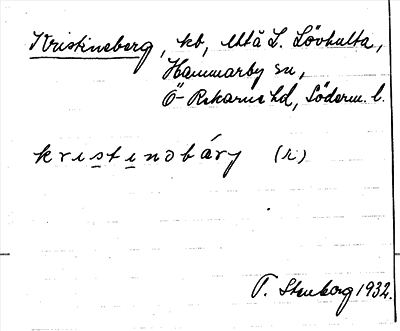 Kristineberg, kb, utå L. Lövhulta,
Hammarby sn,
Ö-Rekarne hd, Söderm. l.
kristinobáry (i)
T. Stenborg 1932.